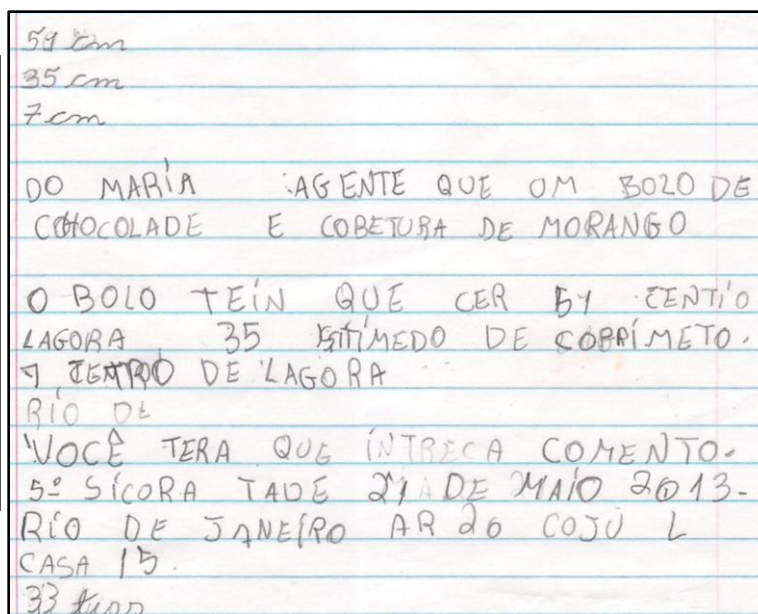 59 cm
35 cm
7 cm
DO MARÍA AGENTE QUE OM BOLO DE
CHOCOLADE E COBETURA DE MORANGO
O BOLO TEÍN QUE CER 51 CENTÍO
LAGORA 35 DE COBRÍMETO.
7 DE LAGORA
RÍO DE
VOCÊ TERA QUE ÍNTRECA COMENTO.
5º SÍCORA TADE 21 DE MAÍO 2013-
RÍO DE JANEÍRO AR 26 COJU L
CASA 15.
33